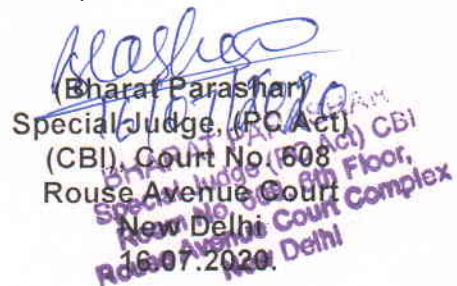 (Bharat Parashar)
Special Judge, (PC Act)
(CBI), Court No. 608
Rouse Avenue Court
New Delhi
16.07.2020.
BHARAT PARASHAR
Special Judge (PC Act) CBI
Room No. 608, 6th Floor,
Rouse Avenue Court Complex
New Delhi